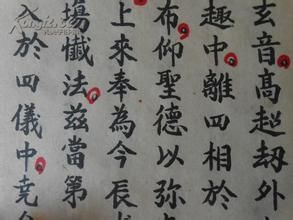 玄音高超劫外
趣中離四相於
布仰聖德以弥
上來奉為今長
場懺法茲當第
入於四儀中堯